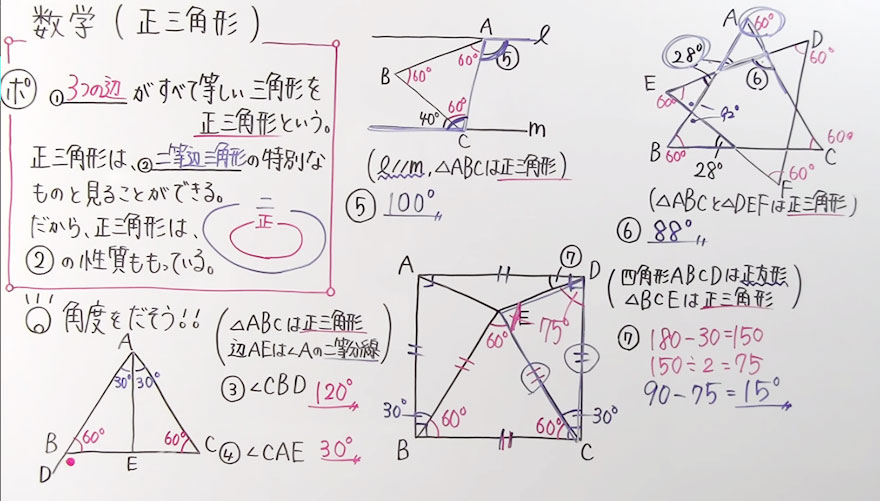 数学 (正三角形)
ポ ① 3つの辺 がすべて等しい三角形を
正三角形という。
正三角形は、② 二等辺三角形の特別な
ものと見ることができる。
だから、正三角形は、
② の性質ももっている。
二
正
角度をだそう!!
△ABCは正三角形
辺AEは∠Aの二等分線
③ ∠CBD 120°
④ ∠CAE 30°
A
30° 30°
B 60° 60° C
D E
A ℓ
60° ⑤
B 60°
60°
40°
C m
(ℓ//m, △ABCは正三角形)
⑤ 100°
A 60°
D
28°
⑥
60°
E
60°
92°
B 60° 60° C
28°
60°
F
(△ABCと△DEFは正三角形)
⑥ 88°
四角形ABCDは正方形
△BCEは正三角形
⑦ 180-30=150
150÷2=75
90-75=15°
A ⑦ D
E
60° 75°
30° 60° 60° 30°
B C